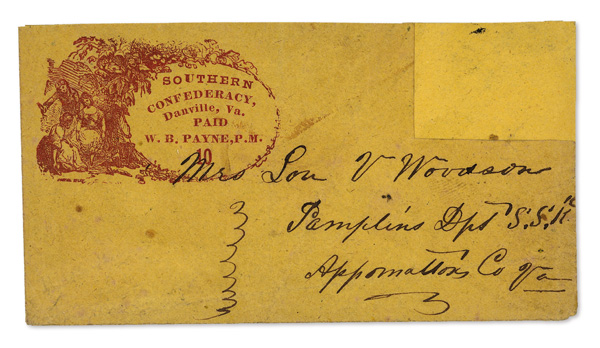 SOUTHERN
CONFEDERACY,
Danville, Va.
PAID
W. B. PAYNE, P.M.
10
Mrs Lou V Woodson
Pamplins Dpt S.S.R
Appomattox Co Va